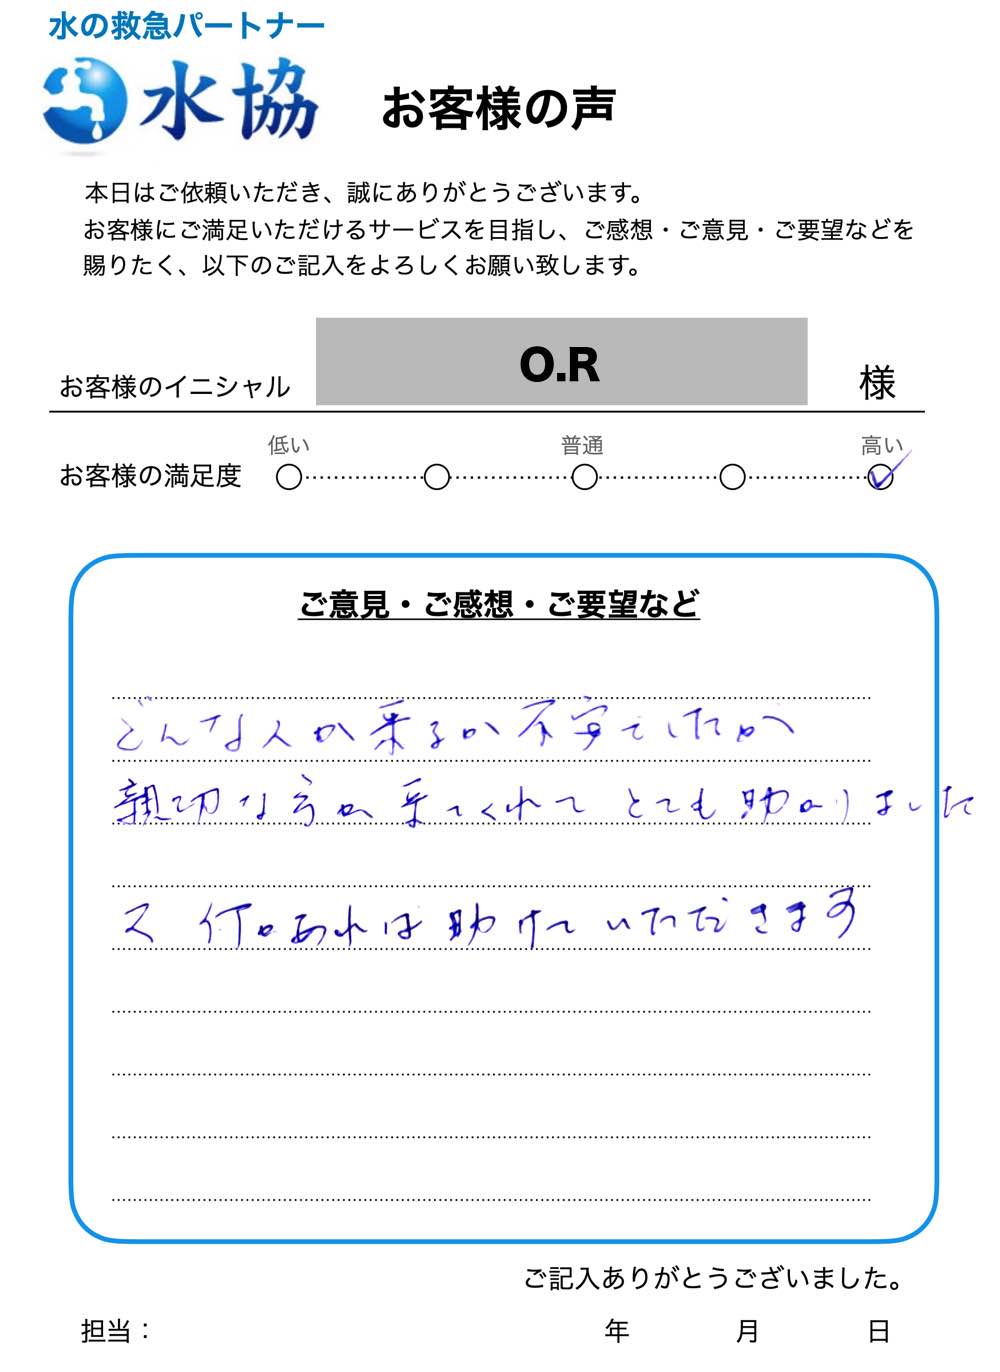 水の救急パートナー
水協
お客様の声
本日はご依頼いただき、誠にありがとうございます。
お客様にご満足いただけるサービスを目指し、ご感想・ご意見・ご要望などを
賜りたく、以下のご記入をよろしくお願い致します。
お客様のイニシャル O.R 様
低い 普通 高い
お客様の満足度
ご意見・ご感想・ご要望など
どんな人が来るか不安でしたが
親切な方が来てくれて とても助かりました
又 何かあれば助けていただきます
ご記入ありがとうございました。
担当： 年 月 日